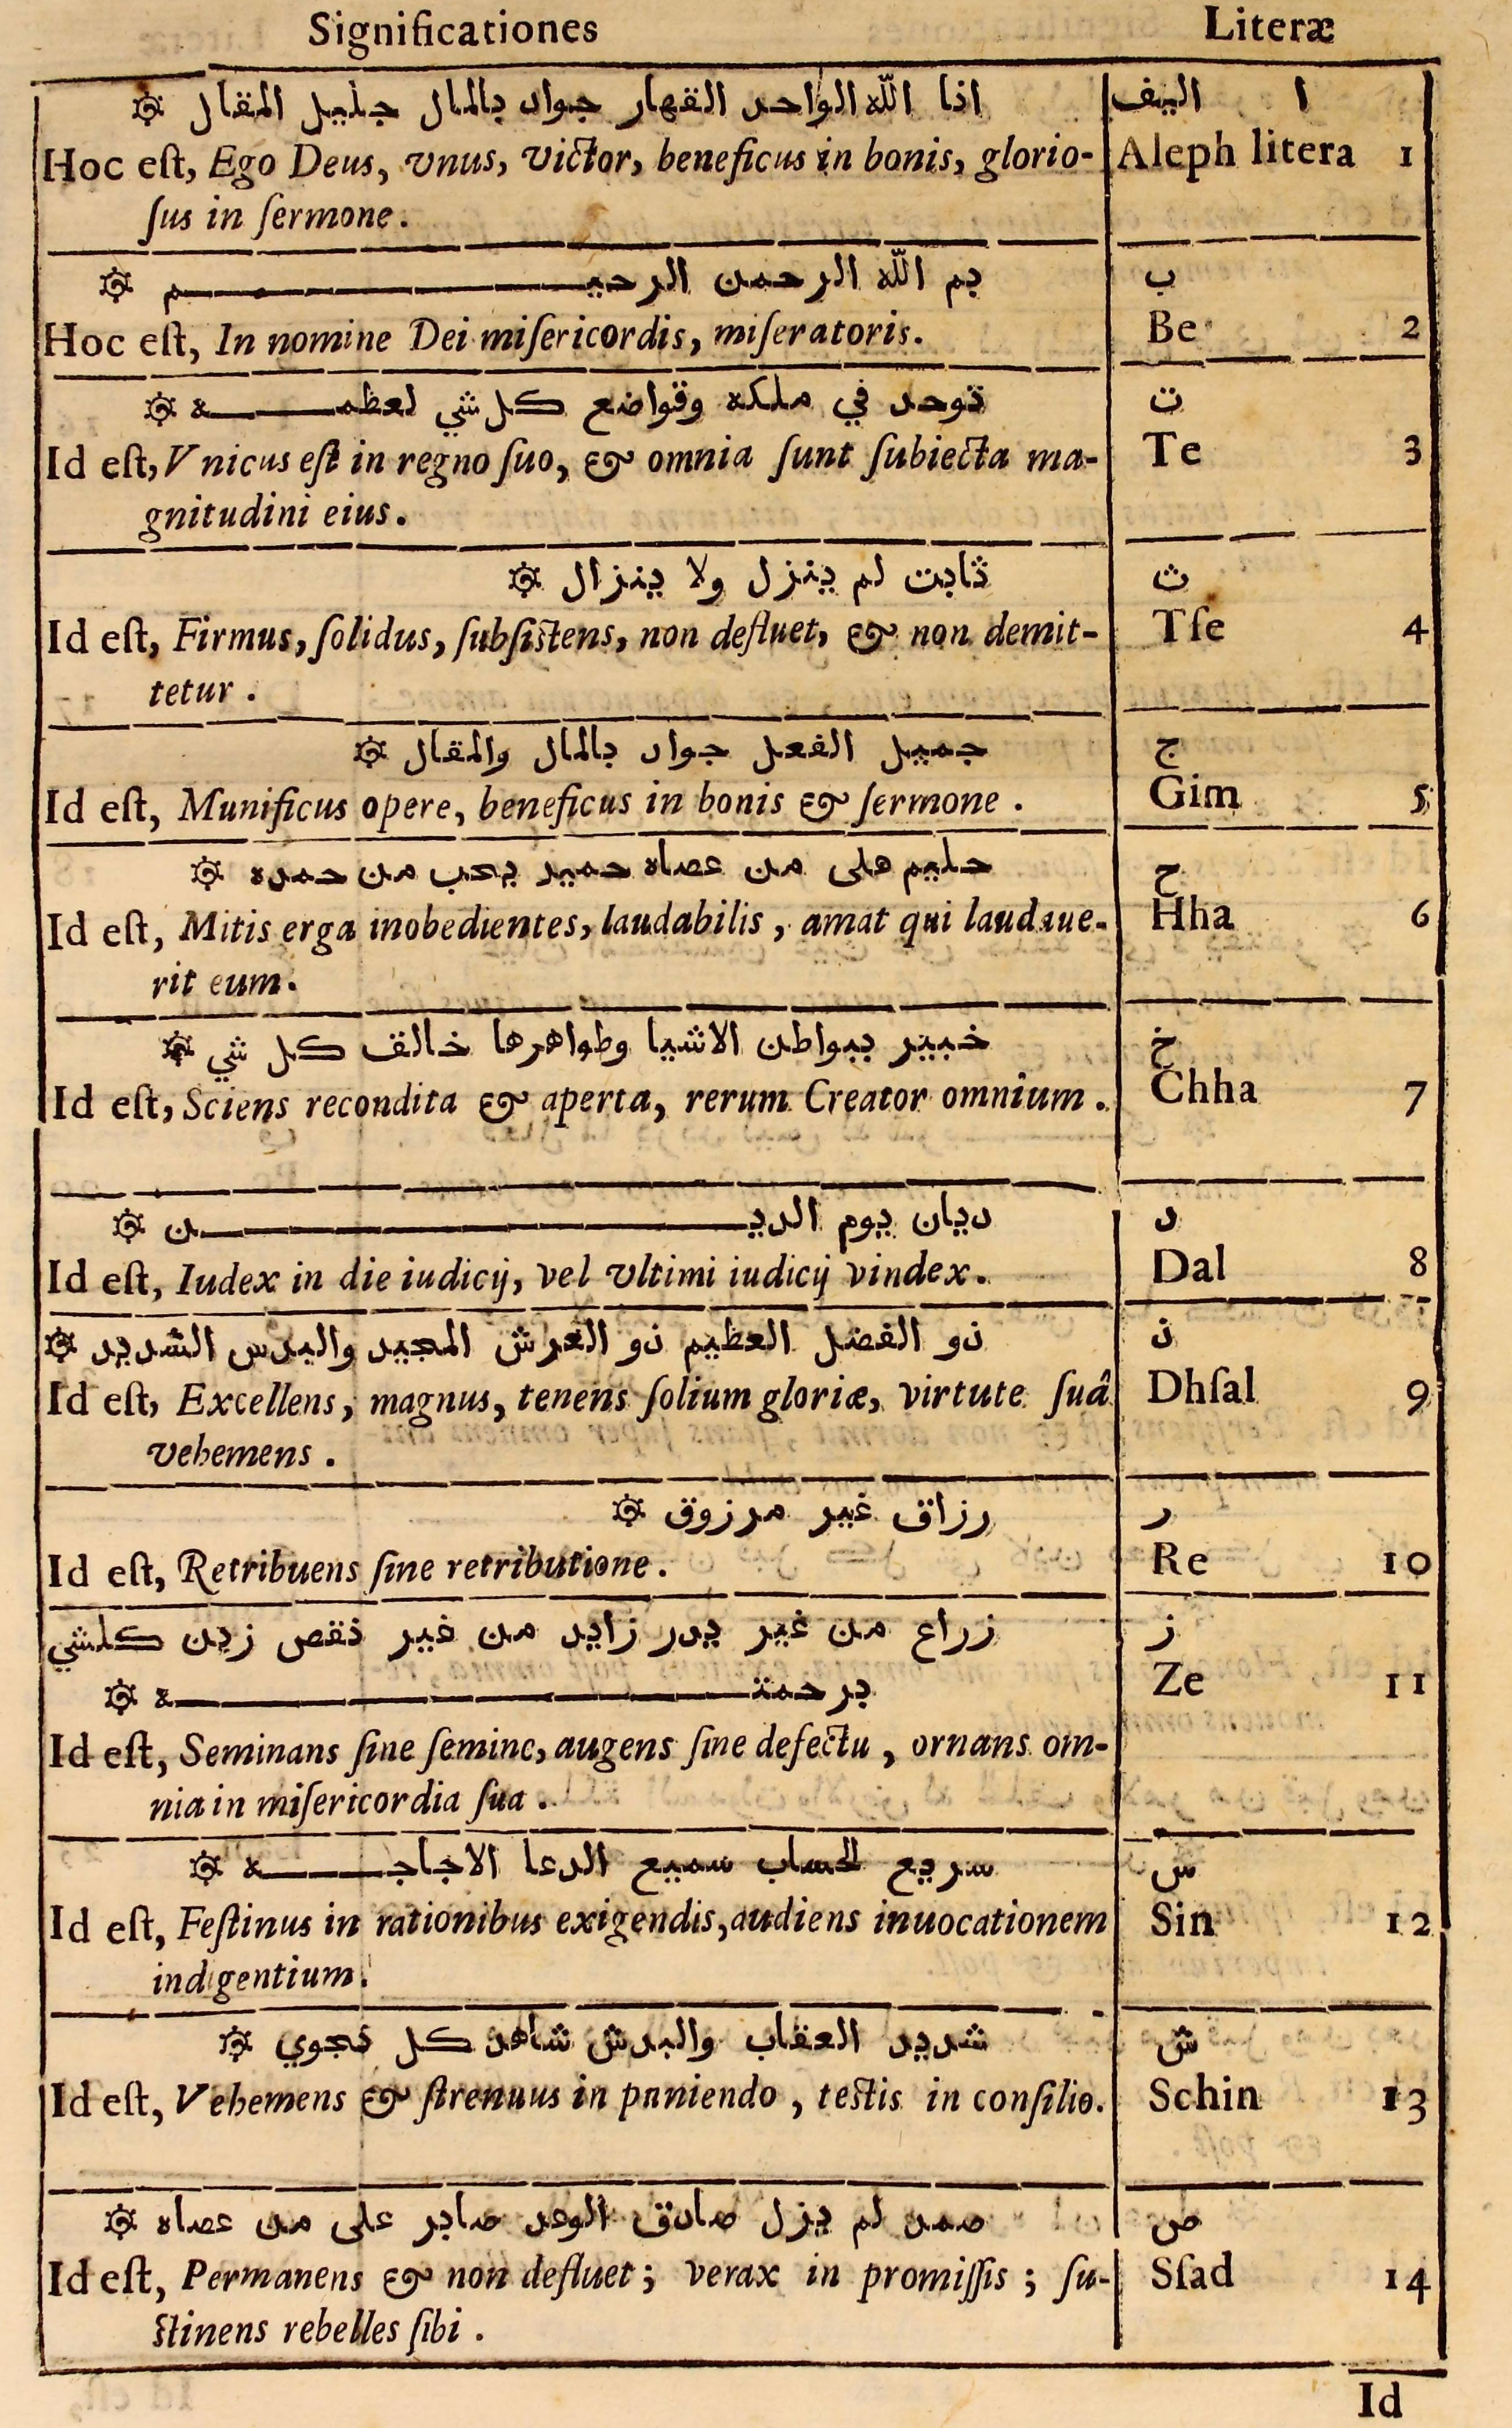 Significationes Literæ
اذا اللّه الواحد القهار جواد بالمال جليل المقال ۞ اليف ا
Hoc eſt, Ego Deus, vnus, victor, beneficus in bonis, glorio- Aleph litera 1
ſus in ſermone.
بم اللّه الرحمن الرحيـــــم ۞ ب
Hoc eſt, In nomine Dei miſericordis, miſeratoris. Be 2
توحد في ملكه وتواضع كل شي لعظمـــه ۞ ت
Id eſt, Vnicus eſt in regno ſuo, & omnia ſunt ſubiecta ma- Te 3
gnitudini eius.
ثابت لم ينزل ولا ينزال ۞ ث
Id eſt, Firmus, ſolidus, ſubſiſtens, non defluet, & non demit- Tſe 4
tetur.
جميل الفعل جواد بالمال والمقال ۞ ج
Id eſt, Munificus opere, beneficus in bonis & ſermone. Gim 5
حليم هلى من عصاه حميد يحب من حمده ۞ ح
Id eſt, Mitis erga inobedientes, laudabilis, amat qui laudaue- Hha 6
rit eum.
خبير ببواطن الاشيا وطواهرها خالف كل شي ۞ خ
Id eſt, Sciens recondita & aperta, rerum Creator omnium. Chha 7
ديان يوم الديـــــن ۞ د
Id eſt, Iudex in die iudicij, vel vltimi iudicij vindex. Dal 8
ذو الفضل العظيم ذو العرش المجيد والبدس الشديد ۞ ذ
Id eſt, Excellens, magnus, tenens ſolium gloriæ, virtute ſuâ Dhſal 9
vehemens.
رزاق غير مرزوق ۞ ر
Id eſt, Retribuens ſine retributione. Re 10
زراع من غير يدر زايد من غير نقص زين كلشي ز
برحمتـــــه ۞ Ze 11
Id eſt, Seminans ſine ſemine, augens ſine defectu, ornans om-
nia in miſericordia ſua.
سريع لحساب سميع الدعا الاجابـــه ۞ س
Id eſt, Feſtinus in rationibus exigendis, audiens inuocationem Sin 12
indigentium.
شديد العقاب والبدش شاهد كل نجوي ۞ ش
Id eſt, Vehemens & ſtrenuus in puniendo, teſtis in conſilio. Schin 13
صمد لم يزل صادق الوعد صابر على من عصاه ۞ ص
Id eſt, Permanens & non defluet; verax in promiſſis; ſu- Sſad 14
ſtinens rebelles ſibi.
Id